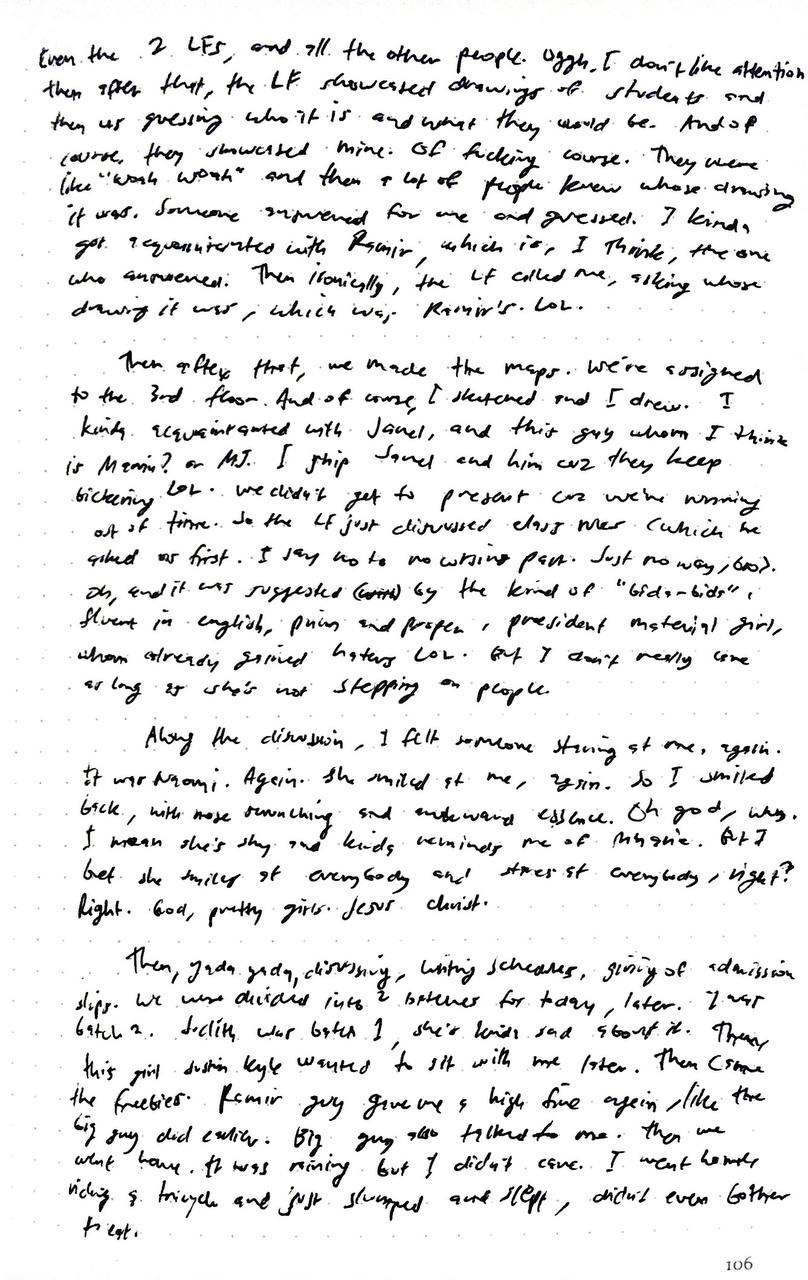 Even the 2 LFs, and all the other people. Uggh, I don't like attention
then after that, the LF showcased drawings of students and
then us guessing who it is and what they would be. And of
course, they showcased mine. Of fucking course. They were
like "woah woah" and then a lot of people knew whose drawing
it was. Someone answered for me and guessed. I kinda
got with Ramir, which is, I think, the one
who answered. Then ironically, the LF called me, asking whose
drawing it was, which was Ramir's. LOL.
Then after that, we made the maps. We're assigned
to the 3rd floor. And of course, I sketched and I drew. I
kinda acquaintanted with Janel, and this guy whom I think
is or MJ. I ship Janel and him cuz they keep
bickering LOL. We didn't get to present cuz we're running
out of time. So the LF just discussed class rules (which he
asked us first. I say no to no cursing part. Just no way, bro).
Oh, and it was suggested by the kind of "bida-bida",
fluent in english, prim and proper, president material girl,
whom already gained haters LOL. But I don't really care
as long as she's not stepping on people.
Along the discussion, I felt someone staring at me, again.
It was Naomi. Again. She smiled at me, again. So I smiled
back, with nose scrunching and awkward essence. Oh god, why.
I mean she's shy and kinda reminds me of But I
bet she smiles at everybody and stares at everybody, right?
Right. God, pretty girls. Jesus christ.
Then, yada yada, discussing, writing schedules, giving of admission
slips. We were divided into 2 batches for today, later. I was
batch 2. was batch 1, she's kinda sad about it. Then,
this girl Kyle wanted to sit with me later. Then came
the freebies. Ramir guy gave me a high five again, like the
big guy did earlier. Big guy also talked to me. Then we
went home. It was raining but I didn't care. I went home
riding a tricycle and just slumped and slept, didn't even bother
to eat.
106